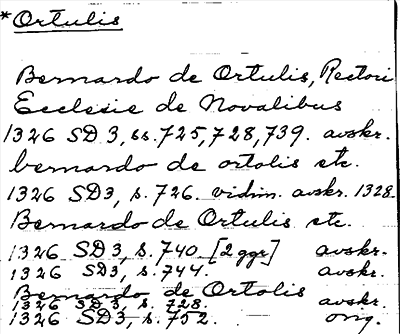 *Ortulis
Bernardo de Ortulis, Rectori
Ecclesie de Novalibus
1326 SD 3, ss. 725, 728, 739. avskr.
bernardo de ortolis etc.
1326 SD3, s. 726. vidim. avskr. 1328.
Bernardo de Ortulis etc.
1326 SD3, s. 740 [2 ggr] avskr.
1326 SD3, s. 744. avskr.
Bernardo de Ortolis
1326 SD3, s. 728. avskr.
1326 SD3, s. 752. orig.